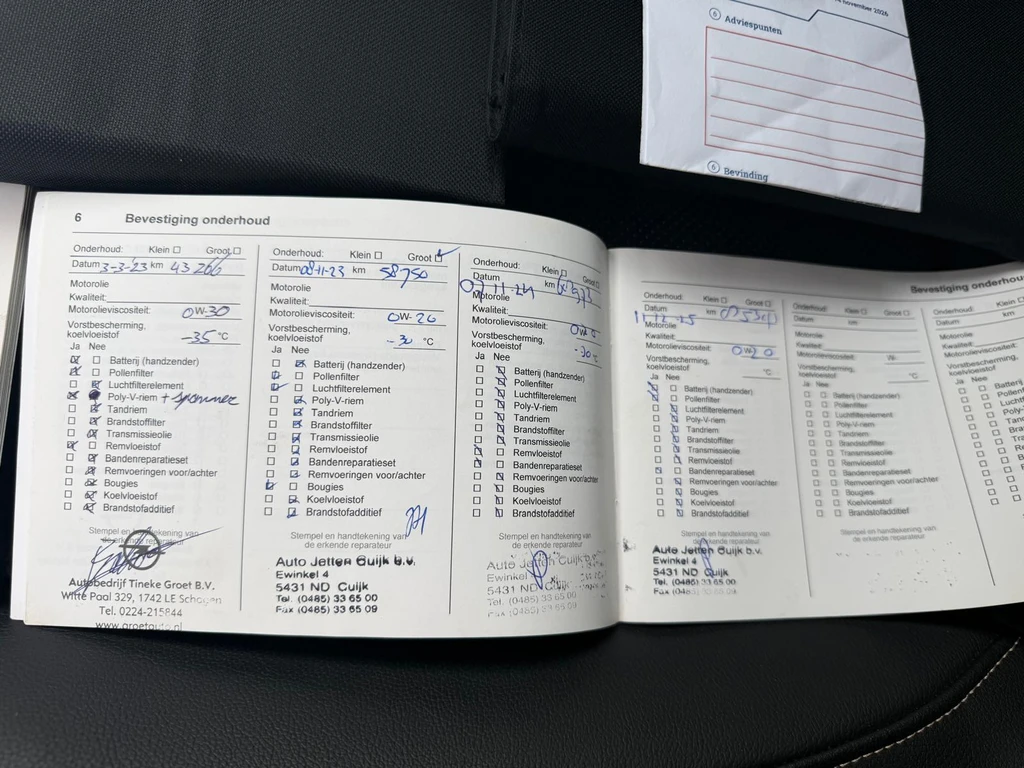 november 2026
6 Adviespunten
6 Bevinding
6 Bevestiging onderhoud
Onderhoud: Klein Groot
Datum 3-3-'23 km 43266
Motorolie
Kwaliteit:
Motorolieviscositeit: 0W-30
Vorstbescherming,
koelvloeistof -35 °C
Ja Nee
Batterij (handzender)
Pollenfilter
Luchtfilterelement
Poly-V-riem + spanner
Tandriem
Brandstoffilter
Transmissieolie
Remvloeistof
Bandenreparatieset
Remvoeringen voor/achter
Bougies
Koelvloeistof
Brandstofadditief
Stempel en handtekening van
de erkende reparateur
Autobedrijf Tineke Groet B.V.
Witte Paal 329, 1742 LE Schagen
Tel. 0224-215844
www.groetauto.nl
Onderhoud: Klein Groot
Datum 08-11-23 km 58750
Motorolie
Kwaliteit:
Motorolieviscositeit: 0W-20
Vorstbescherming,
koelvloeistof -30 °C
Ja Nee
Batterij (handzender)
Pollenfilter
Luchtfilterelement
Poly-V-riem
Tandriem
Brandstoffilter
Transmissieolie
Remvloeistof
Bandenreparatieset
Remvoeringen voor/achter
Bougies
Koelvloeistof
Brandstofadditief
Stempel en handtekening van
de erkende reparateur
Auto Jetten Cuijk B.V.
Ewinkel 4
5431 ND Cuijk
Tel. (0485) 33 65 00
Fax (0485) 33 65 09
Onderhoud: Klein Groot
Datum 07-11-24 km
Motorolie
Kwaliteit:
Motorolieviscositeit:
Vorstbescherming,
koelvloeistof -30 °C
Ja Nee
Batterij (handzender)
Pollenfilter
Luchtfilterelement
Poly-V-riem
Tandriem
Brandstoffilter
Transmissieolie
Remvloeistof
Bandenreparatieset
Remvoeringen voor/achter
Bougies
Koelvloeistof
Brandstofadditief
Stempel en handtekening van
de erkende reparateur
Auto Jetten Cuijk
Ewinkel
5431 ND Cuijk
Tel. (0485) 33 65 00
Fax (0485) 33 65 09
Bevestiging onderhoud
Onderhoud: Klein Groot
Datum km
Motorolie
Kwaliteit:
Motorolieviscositeit: 0W20
Vorstbescherming,
koelvloeistof °C
Ja Nee
Batterij (handzender)
Pollenfilter
Luchtfilterelement
Poly-V-riem
Tandriem
Brandstoffilter
Transmissieolie
Remvloeistof
Bandenreparatieset
Remvoeringen voor/achter
Bougies
Koelvloeistof
Brandstofadditief
Stempel en handtekening van
de erkende reparateur
Auto Jetten Cuijk b.v.
Ewinkel 4
5431 ND Cuijk
Tel. (0485) 33 65 00
Fax (0485)
Onderhoud: Klein Groot
Datum km
Motorolie
Kwaliteit:
Motorolieviscositeit: W-
Vorstbescherming,
koelvloeistof °C
Ja Nee
Batterij (handzender)
Pollenfilter
Luchtfilterelement
Poly-V-riem
Tandriem
Brandstoffilter
Transmissieolie
Remvloeistof
Bandenreparatieset
Remvoeringen voor/achter
Bougies
Koelvloeistof
Brandstofadditief
Stempel en handtekening van
de erkende reparateur
Onderhoud: Klein
Datum km
Motorolie
Kwaliteit:
Motorolieviscositeit:
Vorstbescherming,
koelvloeistof
Ja Nee